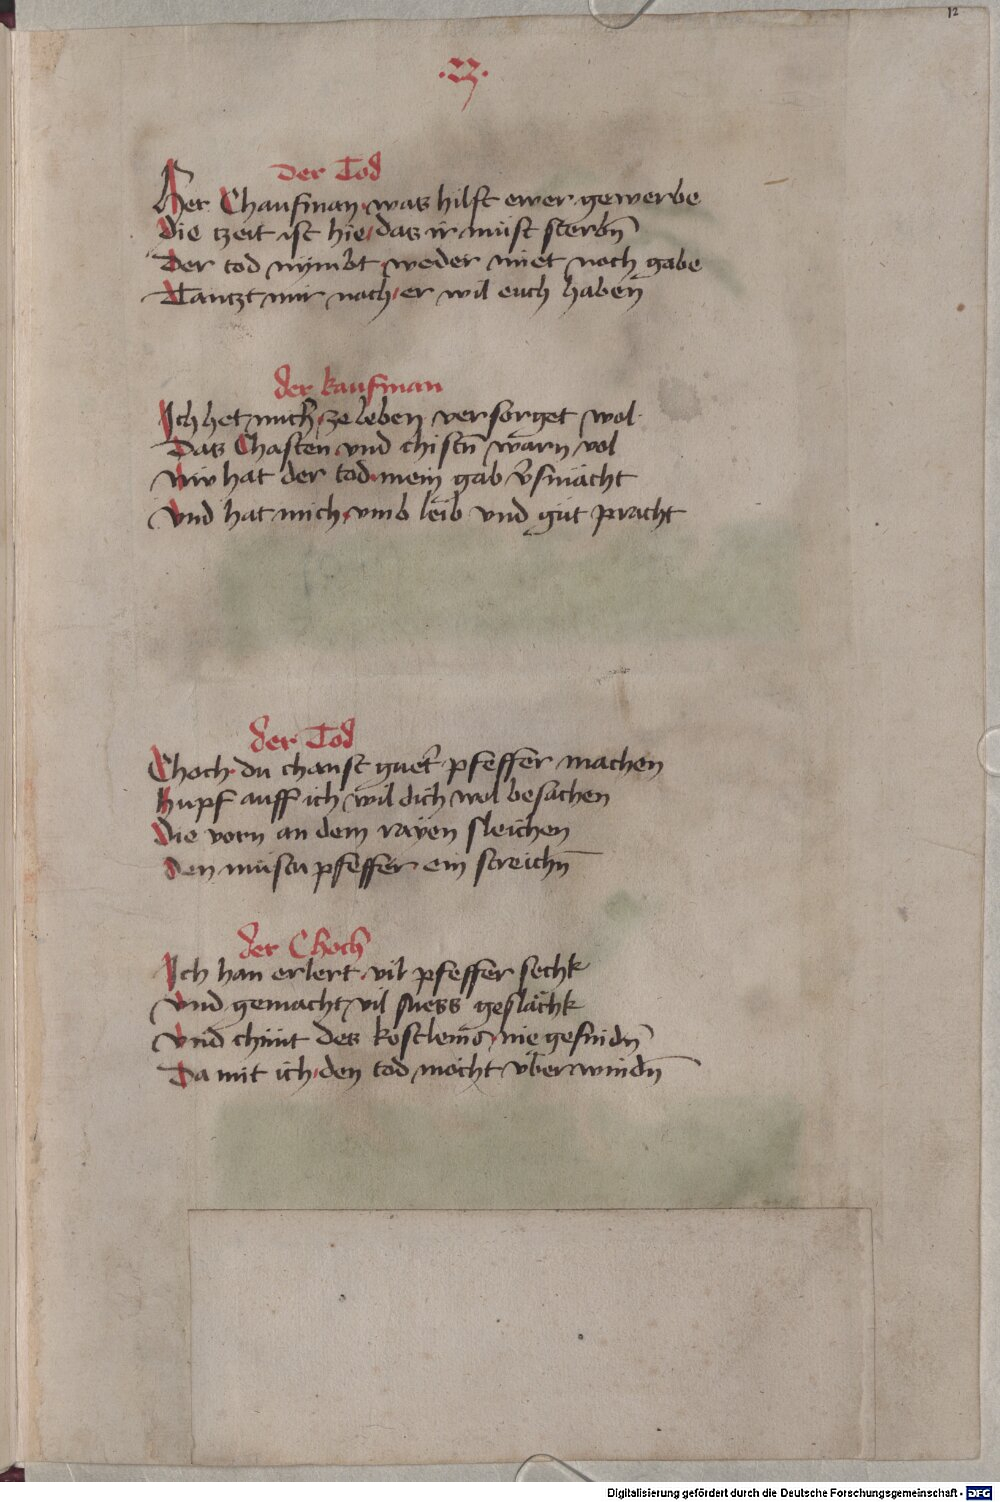 12
der Tod
Her Chaufman was hilft ewer gewerbe
die tzeit ist hie das ir müst sterbn̄
Der tod nymbt weder miet noch gabe
Tantzt mir nach er wil euch haben̄
der kaufman
Ich het mich ze leben versorget wol
Das Chasten vnd chistn̄ warn vol
Nw hat der tod mein gab v̄smächt
Vnd hat mich vmb leib vnd gut pracht
der Tod
Choch du chanst guet̄ pfeffer machen
hupf auff ich wil dich wol besachen
die vorn an dem rayen sleichen
den müstu pfeffer ein streichn̄
der Choch
Ich han erlert vil pfeffer sechk
Vnd gemacht vil suess geslächk
Vnd chunt des nie gefindn̄
Da mit ich den tod mocht vberwindn̄
Digitalisierung gefördert durch die Deutsche Forschungsgemeinschaft - DFG